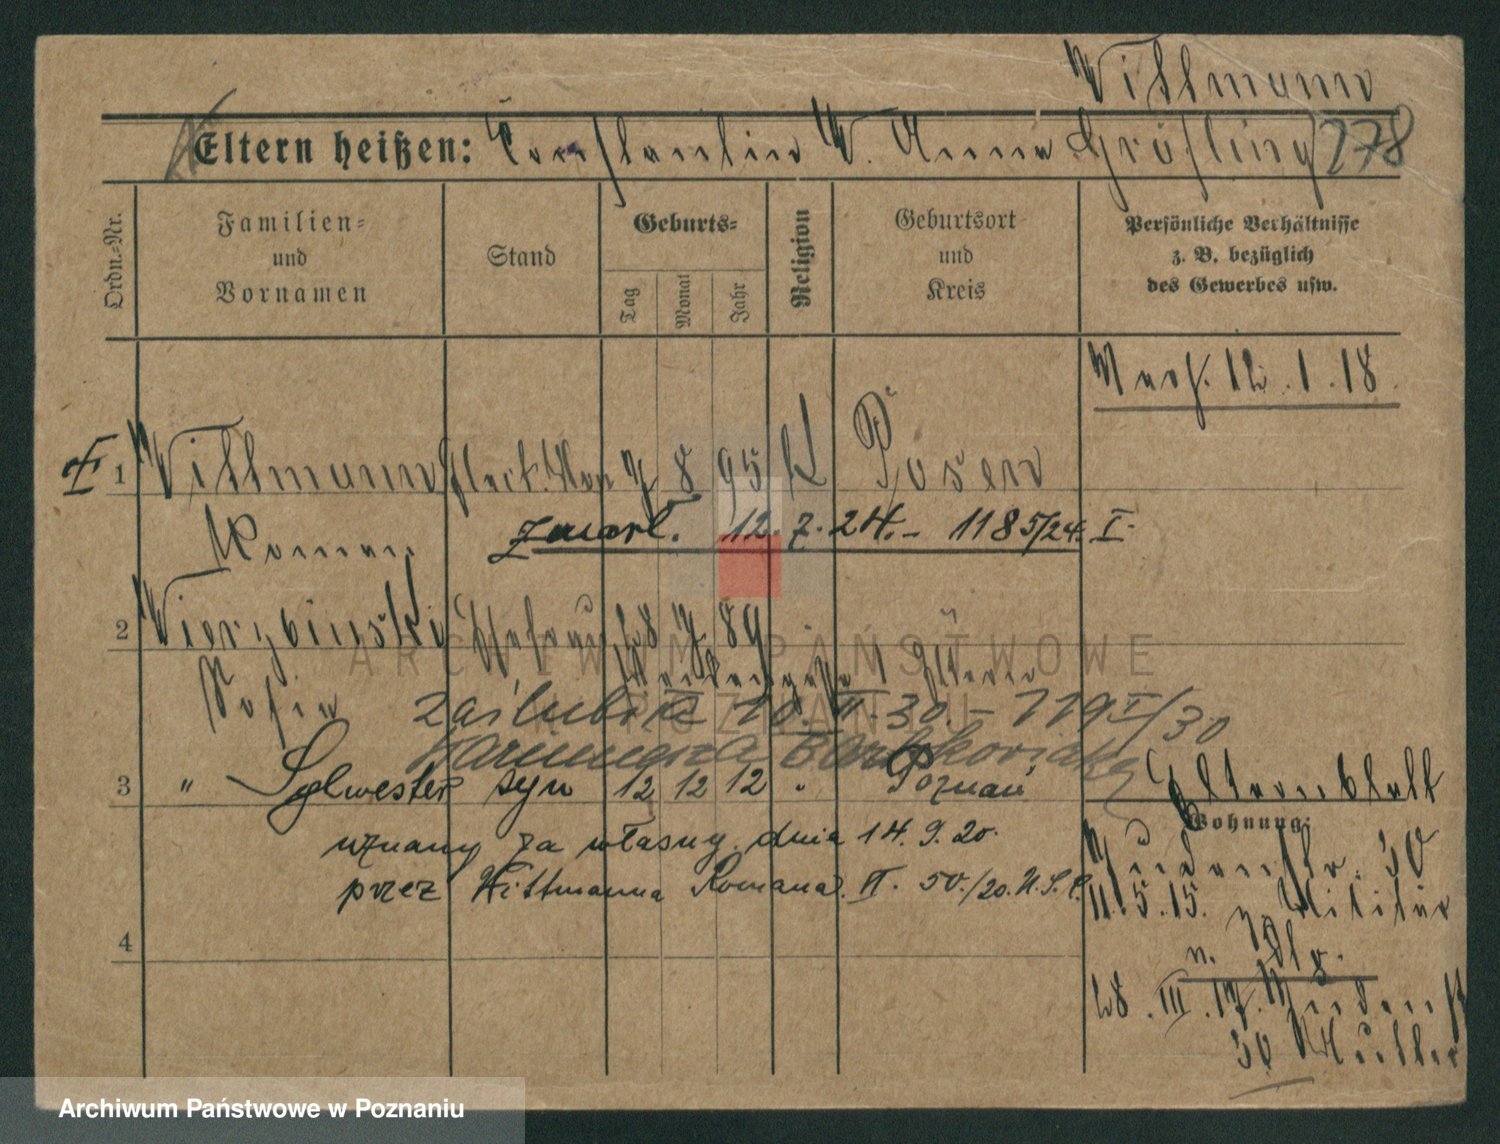 Wittmann
Eltern heißen: Constantin W. Anna Gräfling 778
Ordn.-Nr.
Familien- und Vornamen
Stand
Geburts-
Tag
Monat
Jahr
Religion
Geburtsort und Kreis
Persönliche Verhältnisse z. B. bezüglich des Gewerbes usw.
12.1.18.
1 Wittmann 8 95 K Posen
Roman zmarł. 12.7.24.- 1185/24. I.
2 Wierzbinski 89
Sofia
zaślubił 10. II. 30. - 119 I/30
3 " Sylwester syn 12 12 12 " Poznań Elternblatt
Wohnung:
uznany za własny dnia 14.9.20.
przez Wittmanna Romana. II. 50./20. U.S.C.
30
11.5.15. z. Militär
4
n. Slg.
III.17.
30 Mutter
ARCHIWUM PAŃSTWOWE
W POZNANIU
Archiwum Państwowe w Poznaniu